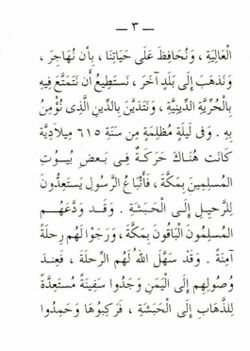 — ٣ —
الْعَالِيَةِ ، وَنُحَافِظَ عَلَى حَيَاتِنَا ، بِأَن نُهَاجِرَ ،
وَنَذهَبَ إِلَى بَلَدٍ آخَرَ ، نَستَطِيعُ أَن نَتَمَتَّعَ فِيهِ
بِالْحُرِّيَّةِ الدِّينِيَّةِ ، وَنَتَدَيَّنَ بِالدِّينِ الَّذِى نُؤْمِنُ
بِهِ . وَفِى لَيلَةٍ مُظلِمَةٍ مِن سَنَةِ ٦١٥ مِيلَادِيَّةٍ
كَانَت هُنَاكَ حَرَكَةٌ فِى بَعضِ بُيُوتِ
المُسلِمِينَ بِمَكَّةَ ، فَأَتْبَاعُ الرَّسُولِ يَستَعِدُّونَ
لِلرَّحِيلِ إِلَى الْحَبَشَةِ . وَقَد وَدَّعَهُم
المُسلِمُونَ الْبَاقُونَ بِمَكَّةَ ، وَرَجَوْا لَهُم رِحلَةً
آمِنَةً . وَقَد سَهَّلَ اللهُ لَهُم الرِّحلَةَ ، فَعِندَ
وُصُولِهِم إِلَى الْيَمَنِ وَجَدُوا سَفِينَةً مُستَعِدَّةً
لِلذَّهَابِ إِلَى الْحَبَشَةِ ، فَرَكِبُوهَا وَحَمِدُوا